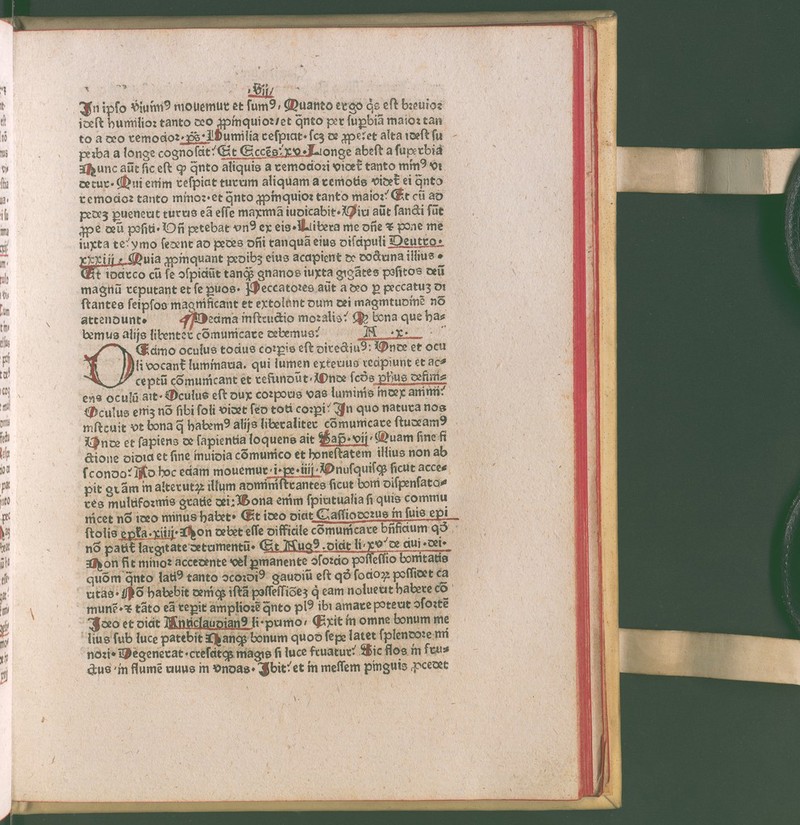 .vij.
In ipso viuim⁹ mouemur et sum⁹, Quanto ergo q̇s est breuior
idest humilior tanto deo ꝓpinquior/et q̄nto per supbiā maior tan
to a deo remocior. ps̄. Humilia respicit. scꝫ de ꝓpe: et alta idest su
perba a longe cognoscit. Et Eccēs. xv. Longe abest a superbia
Nunc aūt sic est ꝙ q̄nto aliquis a remociori videt̄ tanto min⁹ vi
detur. Qui enim respicit turrim aliquam a remotis videt̄ ei q̄nto
remocior tanto minor. et q̄nto ꝓpinquior tanto maior. Et cū ad
pedeꝫ puenerit turris eā esse maxmā iudicabit. Viri aūt sancti sūt
ꝓpe deū positi. Vn̄ petebat vn⁹ ex eis. Libera me dn̄e ⁊ pone me
iuxta te. ymo sedent ad pedes dn̄i tanquā eius discipuli Deutro.
xxxiij. Quia ꝓpinquant pedibꝫ eius accipient de doctrina illius.
Et idcirco cū se ɔspiciūt tanqꝫ gnanos iuxta gigātes positos deū
magnū reputant et se puos. Peccatores aūt a deo ꝑ peccatuꝫ di
stantes seipsos magnificant et extolunt dum dei magnitudinē nō
attendunt. ¶ Decima instructio moralis. Qꝫ bona que ha-
bemus alijs libenter cōmunicare debemus. .x.
Ecimo oculus tocius corpis est directiu⁹: Vnde et ocu
li vocant̄ luminaria. qui lumen exterius recipiunt et ac-
ceptū cōmunicant et refundūt. Vnde scd̄s phus defini-
ens oculū ait. Oculus est dux corporis vas luminis index animi.
Oculus enim nō sibi soli videt sed toti corpi. In quo natura nos
instruit vt bona q̄ habem⁹ alijs liberaliter cōmunicare studeam⁹
Vnde et sapiens de sapientia loquens ait Sap̄. vij. Quam sine fi
ctione didici et sine inuidia cōmunico et honestatem illius non ab
scondo. Ad hoc eciam mouemur .i. pe. iiij. Vnusquisqꝫ sicut acce-
pit gr̄am in alterutrꝫ illam administrantes sicut boni dispensato-
res multiformis gratie dei: Bona enim spiritualia si quis commu
nicet nō ideo minus habet. Et ideo dicit Cassiodorus in suis epi
stolis epl̄a. xiiij. Non debet esse difficile cōmunicare bn̄ficium qd̄
nō patit̄ largitate detrimentū. Et Aug⁹. dicit li. xv. de ciui. dei.
Non fit minor accedente vel pmanente ɔsorcio possessio bonitatis
quōm q̄nto lati⁹ tanto ɔcordi⁹ gaudiū est qd̄ socioꝝ possidet ca
ritas. Nō habebit deniqꝫ istā possessionē q̇ eam noluerit habere cō
munē. ⁊ tāto eā repit ampliorē q̄nto pl⁹ ibi amare poterit ɔsortē
Ideo et dicit Anticlaudian⁹ li. primo. Exit in omne bonum me
lius sub luce patebit Namqꝫ bonum quod sepe latet splendore mi
nori. Degenerat. crescitqꝫ magis si luce fruatur. Sic flos in fru-
ctus. in flumē riuus in vndas. Ibit. et in messem pinguis ꝓcedet